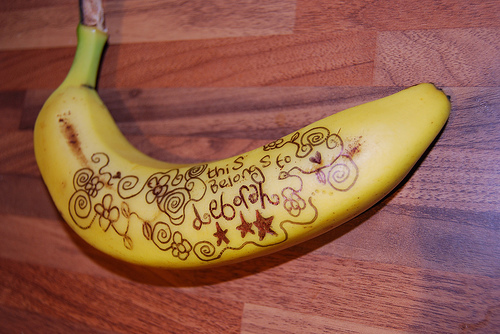 this
Belongs to
Leborah